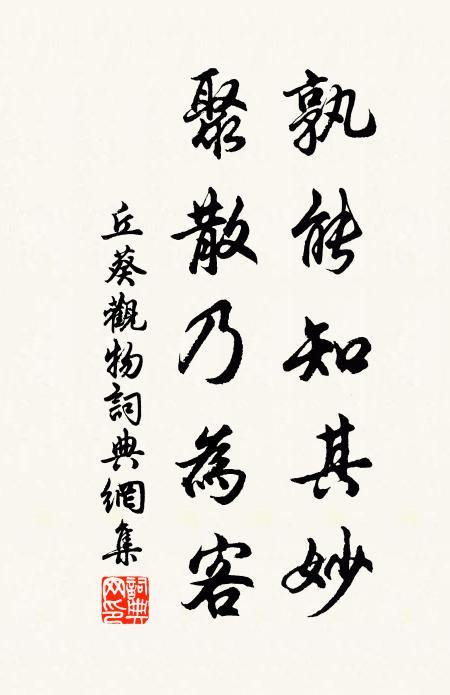 孰能知其妙
聚散乃為客
丘葵觀物詞典網集
詞典網印